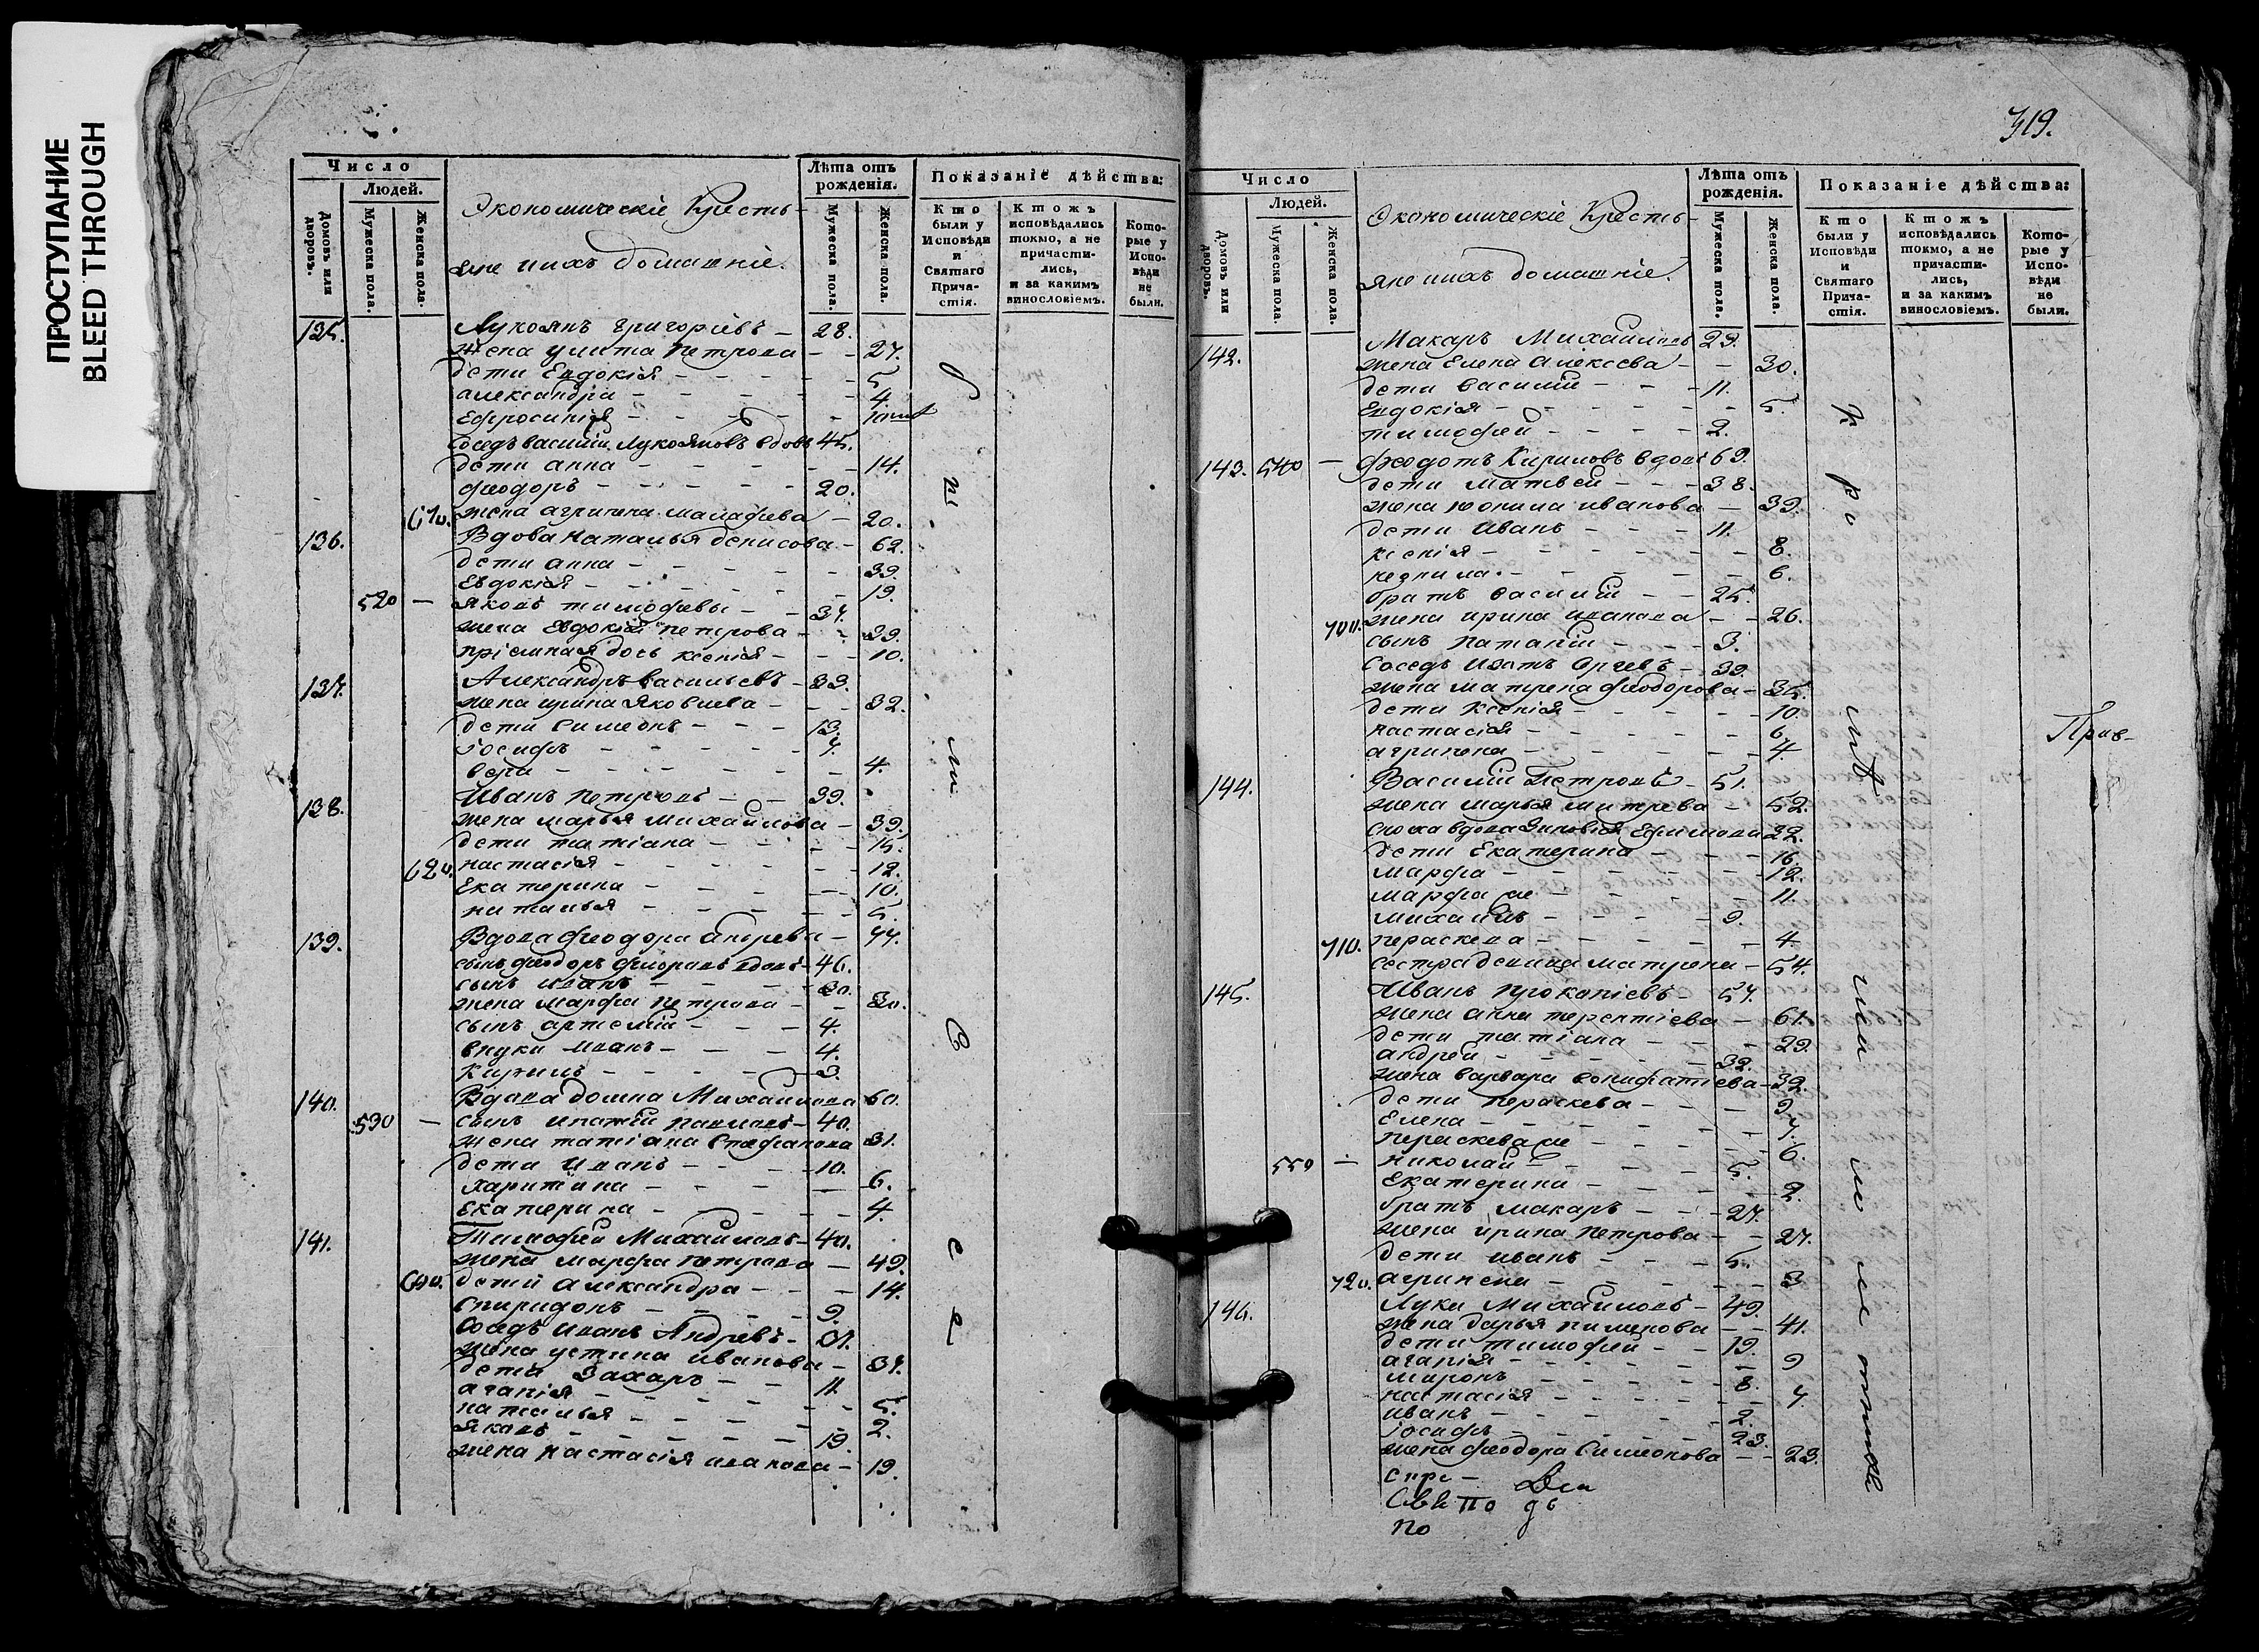 ПРОСТУПАНИЕ
BLEED THROUGH
Число
Людей.
Домовъ или дворовъ.
Мужеска пола.
Женска пола.
Экономическіе Кресть-
яне ихъ домашніе.
Лѣта отъ рожденія.
Мужеска пола.
Женска пола.
Показаніе дѣйства:
Кто были у Исповѣди и Святаго Прича-стія.
Ктожъ исповѣдались токмо, а не причасти-лись, и за какимъ винословіемъ.
Кото-рые у Испо-вѣди не были.
135. Лукоянъ Григорьевъ – 28.
жена улита Петрова – – 27.
дети Евдокія – – – – – 5
александра – – – – – 4.
Ефросинія – – – –
Соседъ василій Лукояновъ вдовъ 45.
дети анна – – – – – 14.
феодоръ – – – – – 20.
610. жена агрипена малафеева – 20.
136. Вдова Наталья денисова – 62.
дети анна – – – – – 39.
Евдокія – – – – – 19.
520 – яковъ тимофеевъ – – 37.
жена Евдокія петрова – – 39.
пріемная дочь ксенія – – – 10.
137. Александръ васильевъ – 33.
жена ирина яковлева – – – 32.
дети Симеонъ – – – 13.
Іосифъ – – – – – 7.
вера – – – – – – 4.
138. Иванъ петровъ – – 39.
жена марья михаилова – 39.
дети татіана – – – – 15.
620. настасія – – – – – 12.
Екатерина – – – – – 10.
наталья – – – – – 5.
139. Вдова феодора андреева – 77.
сынъ феодоръ вдовъ – 46.
сынъ иванъ – – – – 30.
жена марфа петрова – – 30.
сынъ артемій – – – 4.
внуки иванъ – – – 4.
Кирилъ – – – – 3.
140. Вдова домна Михаилова 60.
530 – сынъ ипатій павловъ – 40.
жена татіана Стефанова 31.
дети иванъ – – – 10.
харитина – – – – – 6.
Екатерина – – – – – 4.
141. Тимофей Михаиловъ – 40.
жена марфа петрова – 49.
дети александра – – – 14.
Спиридонъ – – – – 9.
Соседъ иванъ Андреевъ –
жена устина иванова – 37.
дети Захаръ – – 11.
агапія – – – – – 5.
наталья – – – – – 2.
яковъ – – – – – 19.
жена настасія иванова – 19.
319.
Число
Людей.
Домовъ или дворовъ.
Мужеска пола.
Женска пола.
Экономическіе Кресть-
яне ихъ домашніе.
Лѣта отъ рожденія.
Мужеска пола.
Женска пола.
Показаніе дѣйства:
Кто были у Исповѣди и Святаго Прича-стія.
Ктожъ исповѣдались токмо, а не причасти-лись, и за какимъ винословіемъ.
Кото-рые у Испо-вѣди не были.
142. Макаръ Михаиловъ 29.
жена Елена алексева – – 30.
дети василій – – – 11.
Евдокія – – – – – 5.
тимофей – – – – 2.
143. 540 – феодотъ Кириловъ вдовъ 69.
дети матвей – – – 38.
жена иванова – 39.
дети иванъ – – – 11.
ксенія – – – – – 8.
– – – – – 6.
братъ василій – – 25.
700. жена ирина иванова – – 26.
сынъ – – – 3.
Соседъ – 39.
жена матрена феодорова – 35.
дети Ксенія – – – – – 10.
настасія – – – – – 6.
агрипена – – – – – 4.
144. Василій Петровъ – 51.
жена марья митрева – 52.
сноха вдова зиновія Ефимова 32.
дети Екатерина – – – – 16.
марфа – – – – – 12.
марфа же – – – – 11.
михаилъ – – – – 9.
710. пераскева – – – – – 4.
сестра девица матрена – 54.
145. Иванъ прокопіевъ – 57.
жена анна терентіева – 61.
дети татіана – – – – 29.
андрей – – – – 32.
жена варвара вонифатіева – 32.
дети пераскева – – – 9.
Елена – – – – – – 7.
пераскева же – – – – 6.
550 – николай – – – – 5.
Екатерина – – – – – 2.
братъ макаръ – – – 27.
жена ирина петрова – – 27.
дети иванъ – – – 5.
720. агрипена – – – – – 3
146. Лука Михаиловъ – 49.
жена дарья пименова – – 41.
дети тимофей – – 19.
агапія – – – – – 9
миронъ – – – – – 8.
настасія – – – – – 7
иванъ – – – – – 2.
Іосифъ – – – – – 23.
жена феодора Симеонова – – 23.